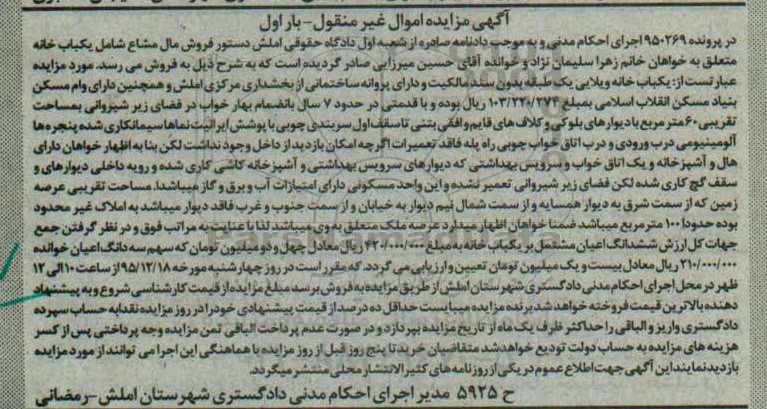 آگهی مزایده اموال غیر منقول-بار اول
در پرونده ۹۵۰۲۶۹ اجرای احکام مدنی و به موجب دادنامه صادره از شعبه اول دادگاه حقوقی املش دستور فروش مال مشاع شامل یکباب خانه
متعلق به خواهان خانم زهرا سلیمان نژاد و خوانده آقای حسین میرزایی صادر گردیده است که به شرح ذیل به فروش می رسد. مورد مزایده
عبارتست از: یکباب خانه ویلایی یک طبقه بدون سند مالکیت و دارای پروانه ساختمانی از بخشداری مرکزی املش و همچنین دارای وام مسکن
بنیاد مسکن انقلاب اسلامی بمبلغ ۱۰۳/۲۲۰/۲۷۴ ریال بوده و با قدمتی در حدود ۷ سال بانضمام بهار خواب در فضای زیر شیروانی بمساحت
تقریبی ۶۰ متر مربع با دیوارهای بلوکی و کلاف های قایم و افقی بتنی تا سقف اول سربندی چوبی با پوشش ایرانیت نماها سیمانکاری شده پنجره ها
آلومینیومی درب ورودی و درب اتاق خواب چوبی راه پله فاقد تعمیرات اگرچه امکان بازدید از داخل وجود نداشت لکن بنا به اظهار خواهان دارای
هال و آشپزخانه و یک اتاق خواب و سرویس بهداشتی که دیوارهای سرویس بهداشتی و آشپزخانه کاشی کاری شده و رویه داخلی دیوارهای و
سقف گچ کاری شده لکن فضای زیر شیروانی تعمیر نشده و این واحد مسکونی دارای امتیازات آب و برق و گاز میباشد. مساحت تقریبی عرصه
زمین که از سمت شرق به دیوار همسایه و از سمت شمال نیم دیوار به خیابان و از سمت جنوب و غرب فاقد دیوار میباشد به املاک غیر محدود
بوده حدودا ۱۰۰ متر مربع میباشد ضمنا خواهان اظهار میدارد عرصه ملک متعلق به وی میباشد لذا با عنایت به مراتب فوق و در نظر گرفتن جمع
جهات کل ارزش ششدانگ اعیان مشتمل بر یکباب خانه به مبلغ ۴۲۰/۰۰۰/۰۰۰ ریال معادل چهل و دو میلیون تومان که سهم سه دانگ اعیان خوانده
۲۱۰/۰۰۰/۰۰۰ ریال معادل بیست و یک میلیون تومان تعیین و ارزیابی می گردد. که مقرر است در روز چهارشنبه مورخه ۹۵/۱۲/۱۸ از ساعت ۱۰ الی ۱۲
ظهر در محل اجرای احکام مدنی دادگستری شهرستان املش از طریق مزایده به فروش برسد مبلغ مزایده از قیمت کارشناسی شروع و به پیشنهاد
دهنده بالاترین قیمت فروخته خواهد شد برنده مزایده میبایست حداقل ده درصد از قیمت پیشنهادی خود را در روز مزایده نقدا به حساب سپرده
دادگستری واریز و الباقی را حداکثر ظرف یک ماه از تاریخ مزایده بپردازد و در صورت عدم پرداخت الباقی ثمن مزایده وجه پرداختی پس از کسر
هزینه های مزایده به حساب دولت تودیع خواهد شد متقاضیان خرید تا پنج روز قبل از روز مزایده با هماهنگی این اجرا می توانند از مورد مزایده
بازدید نمایند این آگهی جهت اطلاع عموم در یکی از روزنامه های کثیرالانتشار محلی منتشر میگردد.
ح ۵۹۲۵ مدیر اجرای احکام مدنی دادگستری شهرستان املش-رمضانی